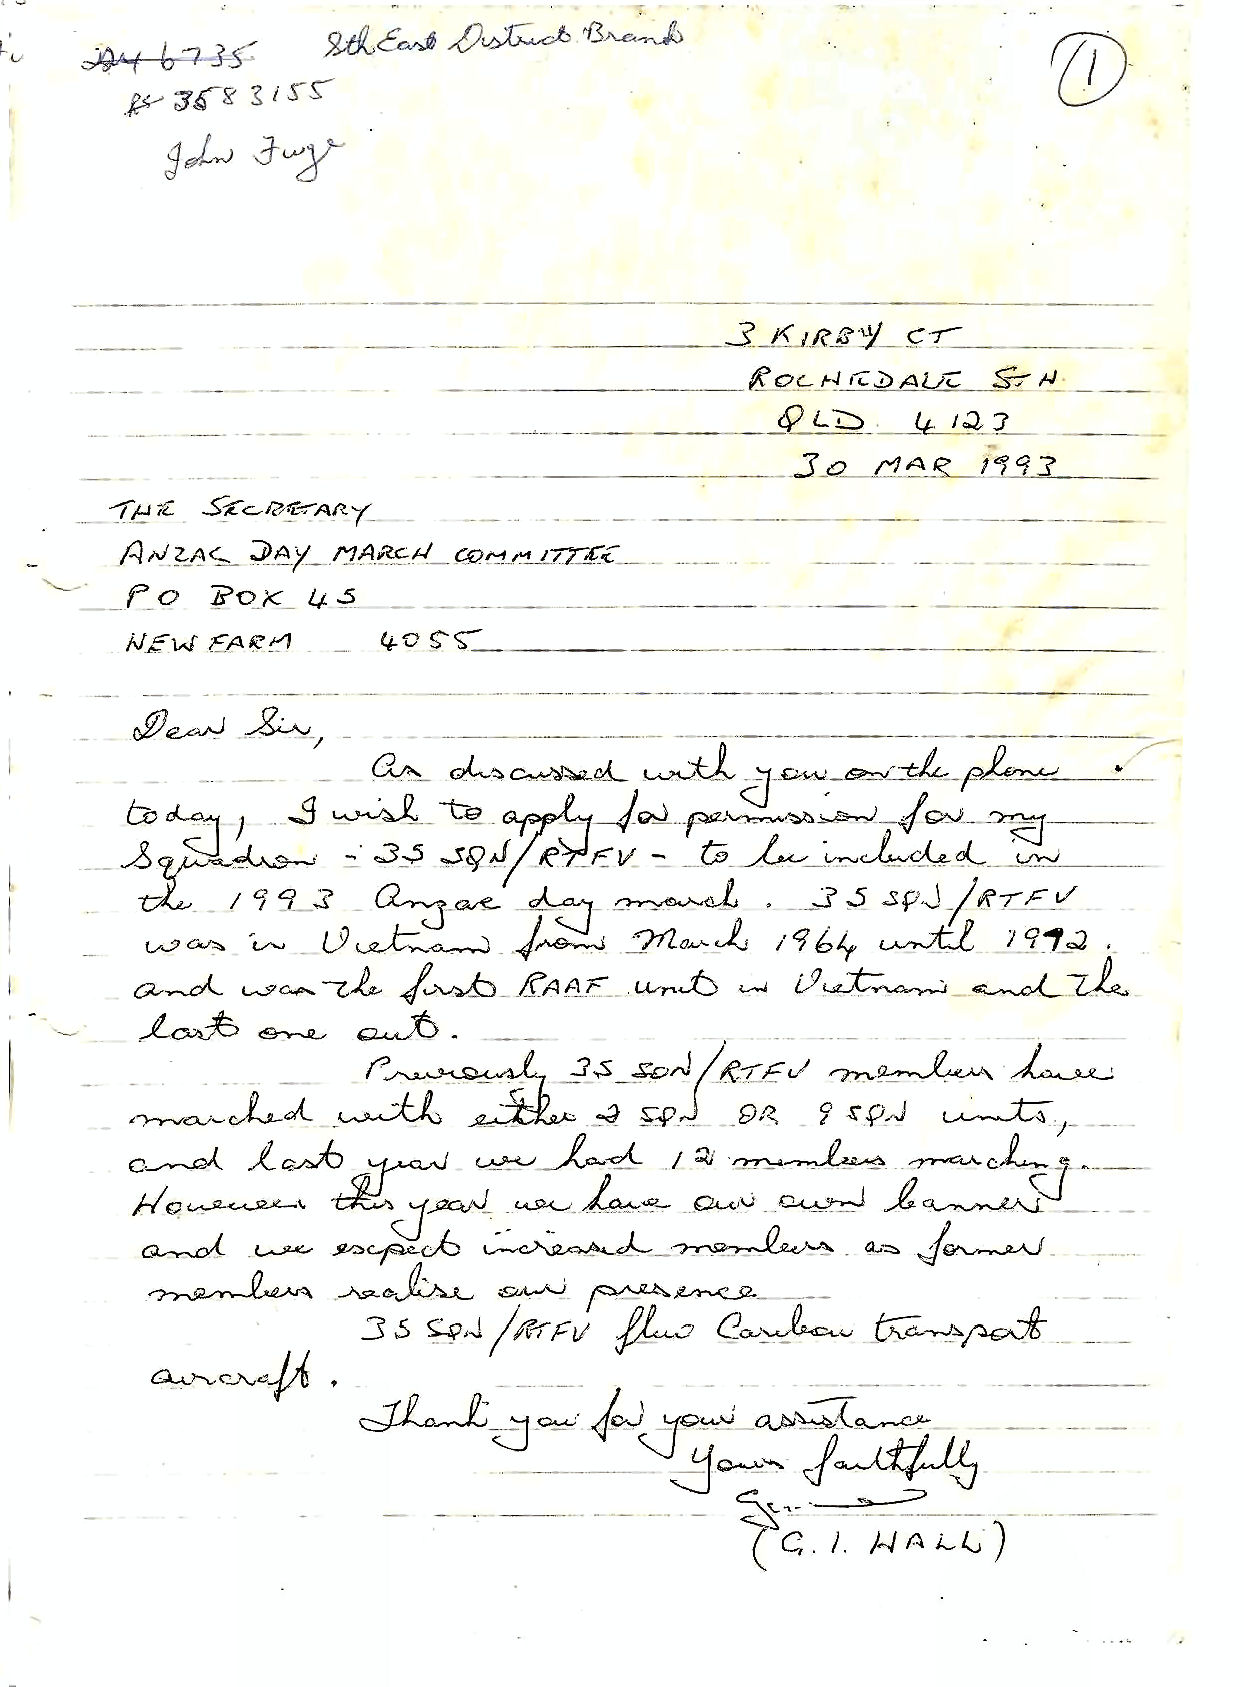 Sth East District Brand
246735
3583155
John Fuge
1
3 KIRBY CT
ROCHEDALE STH
QLD 4123
30 MAR 1993
THE SECRETARY
ANZAC DAY MARCH COMMITTEE
PO BOX 45
NEW FARM 4055
Dear Sir,
As discussed with you on the phone
today, I wish to apply for permission for my
Squadron - 35 SQN/RTFV - to be included in
the 1993 Anzac day march. 35 SQN/RTFV
was in Vietnam from March 1964 until 1972.
and was the first RAAF unit in Vietnam and the
last one out.
Previously 35 SQN/RTFV members have
marched with either 2 SQN OR 9 SQN units,
and last year we had 12 members marching.
However this year we have our own banner
and we expect increased members as former
members realise our presence
35 SQN/RTFV flew Caribou transport
aircraft.
Thank you for your assistance
Yours faithfully
(G.I. HALL)